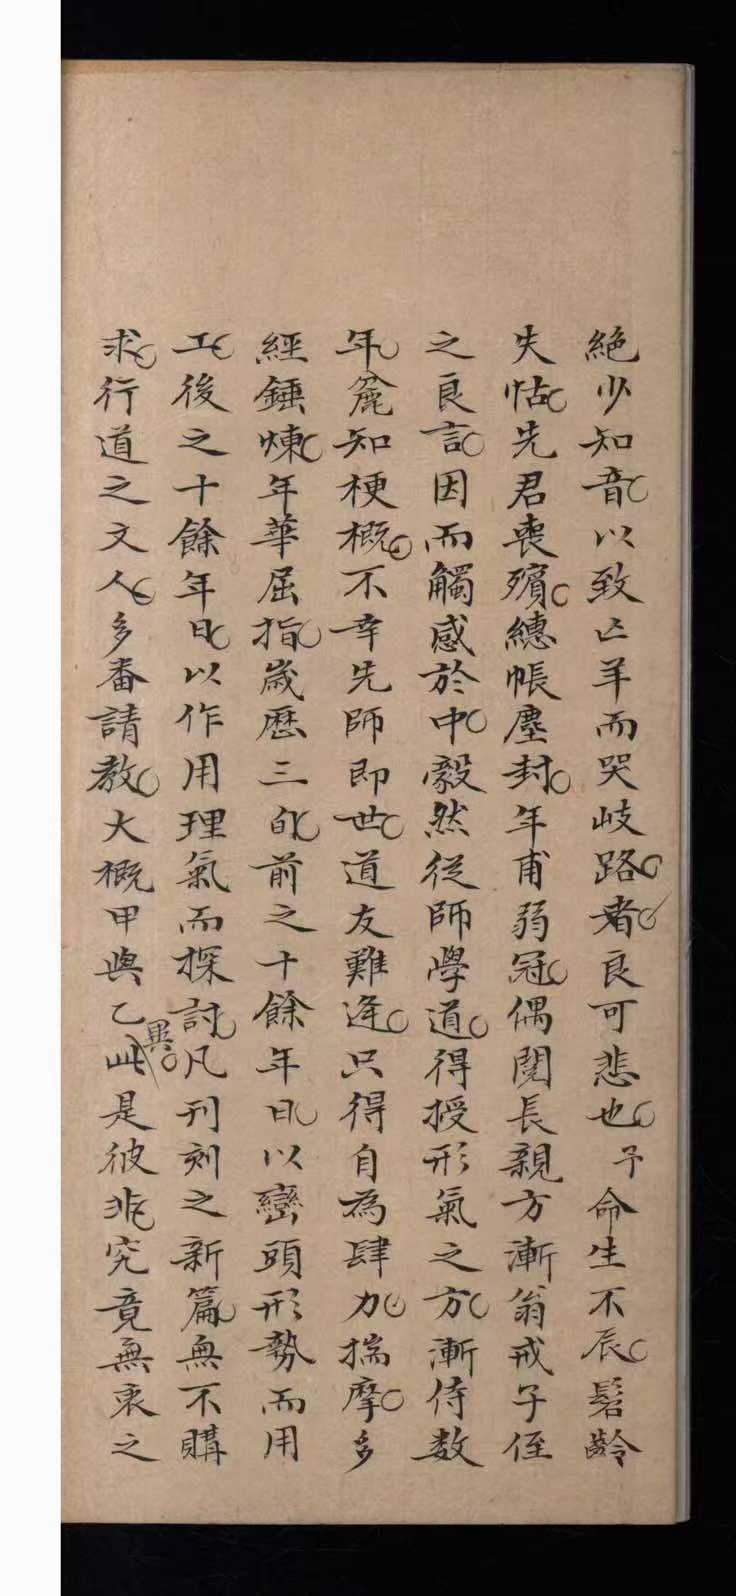 絶少知音以致亡羊而哭岐路者良可悲也予命生不辰髫齡
失怙先君喪殯繐帳塵封年甫弱冠偶閱長親方漸翁戒子侄
之良言因而觸感於中毅然從師學道得授形氣之方漸侍数
年麄知梗概不幸先師即世道友難逢只得自為肆力揣摩多
經錘煉年華屈指歲歷三旬前之十餘年日以巒頭形勢而用
工後之十餘年日以作用理氣而探討凡刊刻之新篇無不購
求行道之文人多畨請教大概甲與乙異此是彼非究竟無衷之